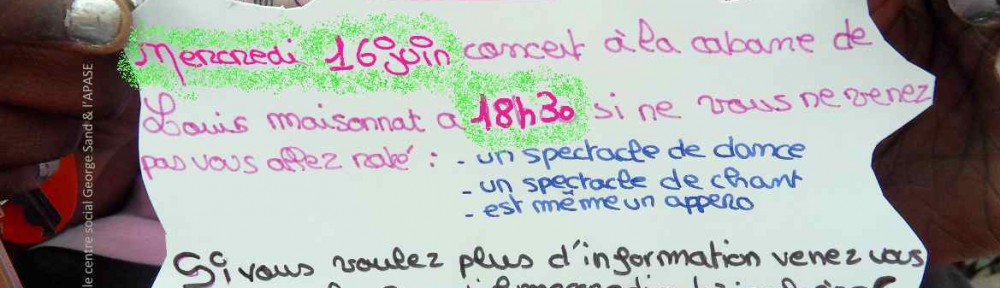 Mercredi 16 juin concert à la cabane de
Louis maisonnat a 18h30 si ne vous ne venez
pas vous allez raté : - un spectacle de dance
- un spectacle de chant
- est même un appero
Si vous voulez plus d'information venez vous
le centre social George Sand & l'APASE